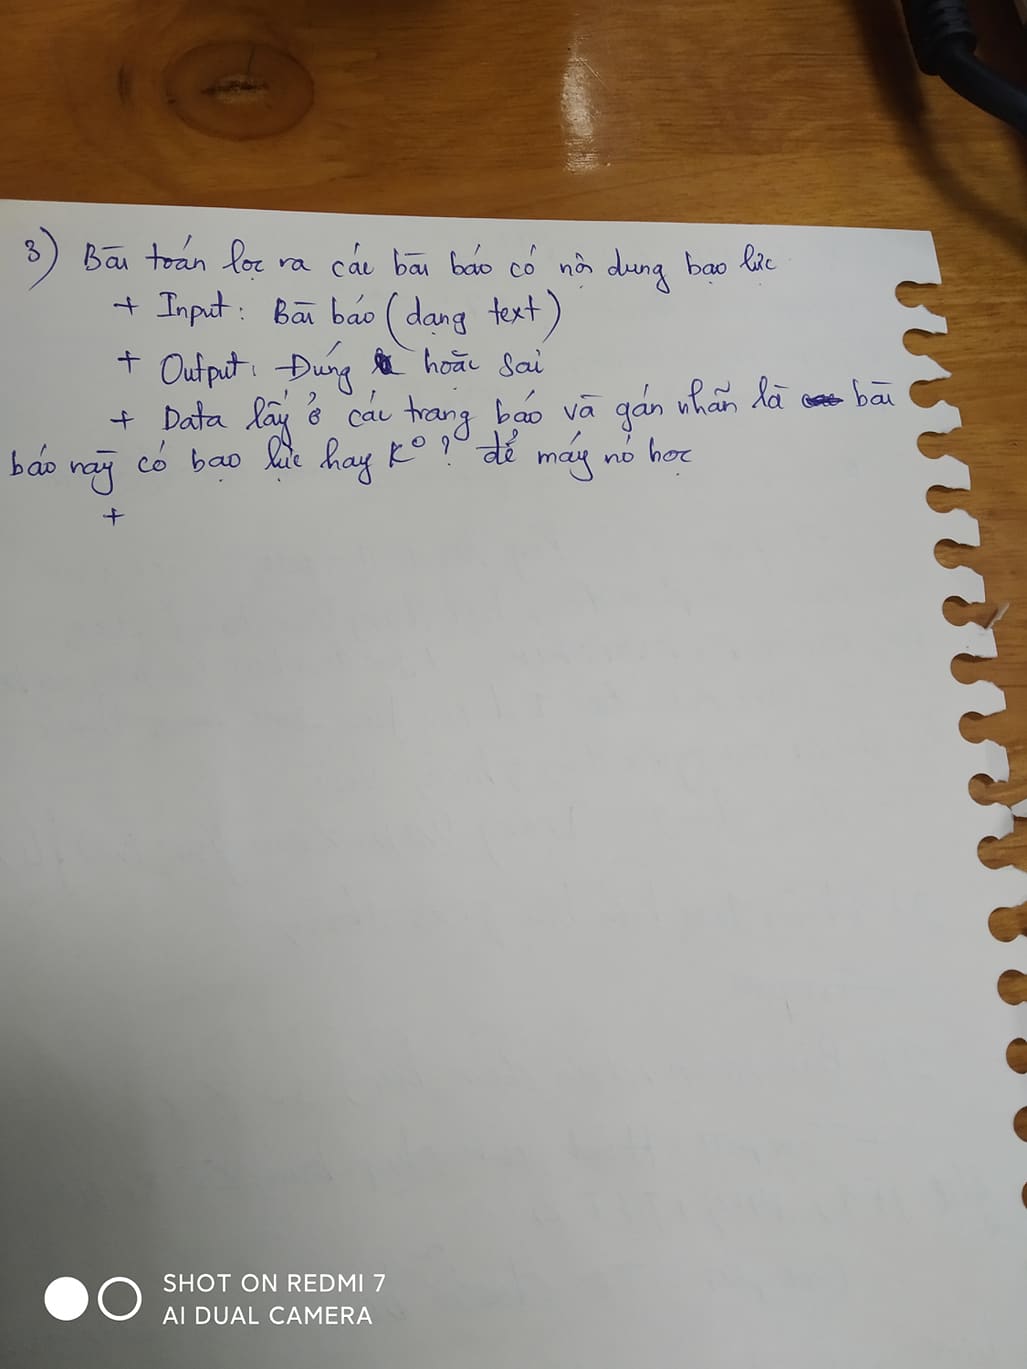 3) Bài toán lọc ra các bài báo có nội dung bạo lực
+ Input: Bài báo (dạng text)
+ Output: Đúng hoặc sai
+ Data lấy ở các trang báo và gán nhãn là bài
báo này có bạo lực hay K⁰? để máy nó học
+
SHOT ON REDMI 7
AI DUAL CAMERA